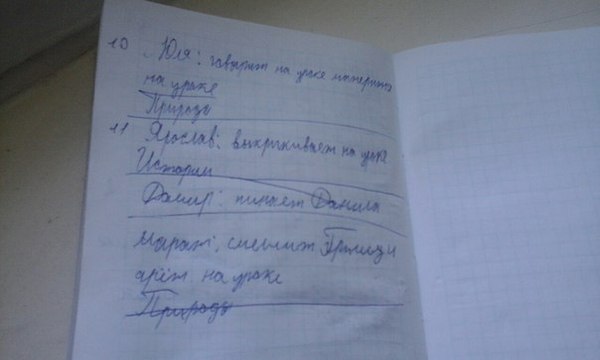 10 Юля: говорит на уроке матерится
на уроке
Природы
11 Ярослав: выкрикивает на уроке
Истории
Дамир: пинает Данила
Марат: смешит
орёт на уроке
Природы